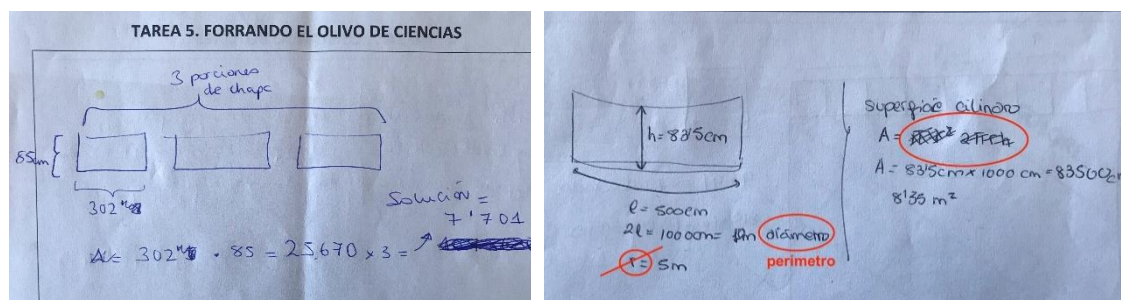 TAREA 5. FORRANDO EL OLIVO DE CIENCIAS
3 porciones
de chapa
85cm
302
Solución =
7'701
A = 302 · 85 = 25,670 x 3 =
h = 83'5cm
l = 500cm
2l = 1000cm = 10m diámetro
perímetro
r = 5m
superficie cilindro
A = 2πr·h
A = 83'5cm x 1000 cm = 83500
8'35 m²